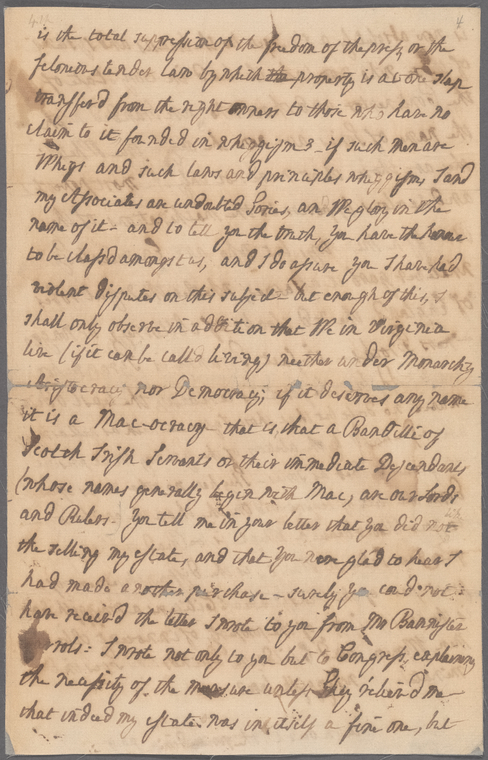 4
is the total suppression of the freedom of the press, or the
felonious tender law by which the property is at one slap
transfer'd from the right owners to those who have no
claim to it founded in whiggism? - if such men are
Whigs and such laws and principles whiggism, I and
my Associates are undoubted Tories, and We glory in the
name of it - and to tell you the truth, you have the honor
to be class'd amongst us, and I do assure you I have had
violent disputes on this subject - but enough of this, I
shall only observe in addition that We in Virginia
live (if it can be call'd living) neither under Monarchy
Aristocracy nor Democracy; if it deserves any name
it is a Mac-ocracy that is that a Banditti of
Scotch Irish Servants or their immediate Descendants
(whose names generally begin with Mac, are our Lords
and Rulers. You tell me in your letter that you did not
the selling my estate, and that you were glad to hear I
had made another purchase - surely you cou'd not
have receiv'd the letter I wrote to you from Mr Bannister
I wrote not only to you but to Congress, explaining
the necessity of the measure unless They reliev'd me
that indeed my estate was in itself a fine one, but